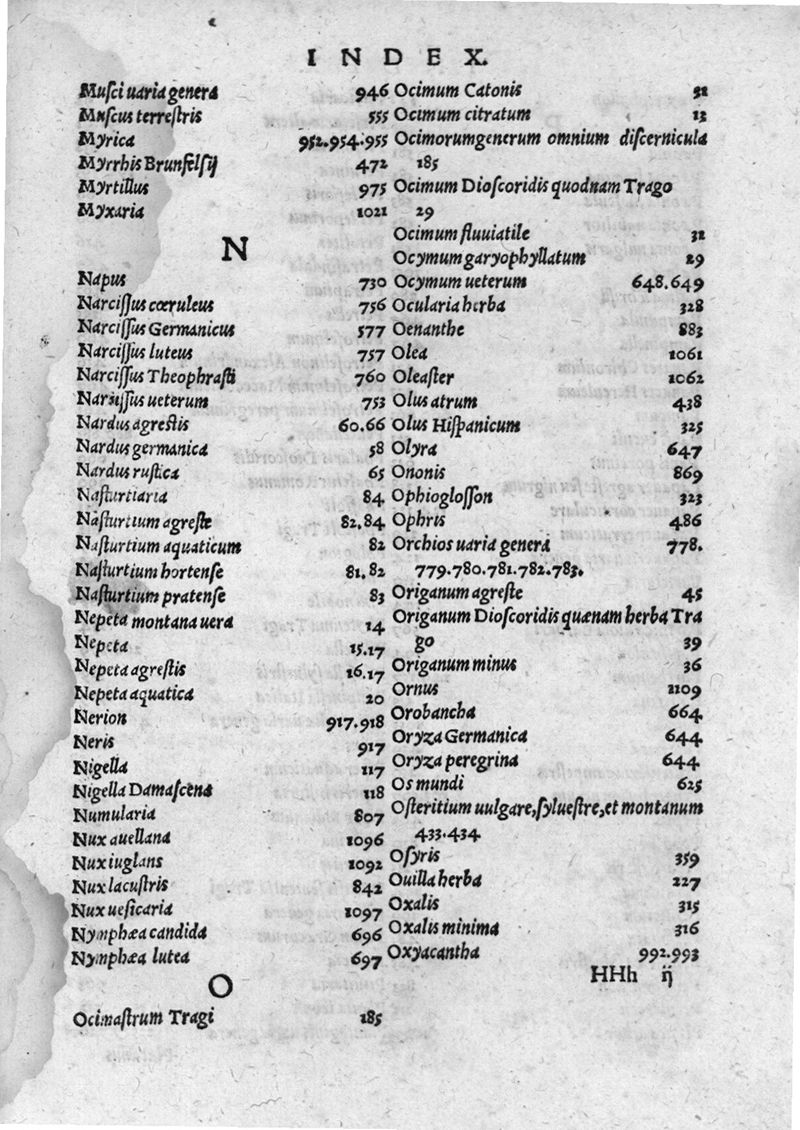 INDEX.
Muſci uaria genera 946
Muſcus terreſtris 555
Myrica 952.954.955
Myrrhis Brunfelſij 472
Myrtillus 975
Myxaria 1021
N
Napus 730
Narciſſus cœruleus 756
Narciſſus Germanicus 577
Narciſſus luteus 757
Narciſſus Theophraſti 760
Narciſſus ueterum 753
Nardus agreſtis 60.66
Nardus germanica 58
Nardus ruſtica 65
Naſturtiaria 84
Naſturtium agreſte 82.84
Naſturtium aquaticum 82
Naſturtium hortenſe 81.82
Naſturtium pratenſe 83
Nepeta montana uera 14
Nepeta 15.17
Nepeta agreſtis 16.17
Nepeta aquatica 20
Nerion 917.918
Neris 917
Nigella 117
Nigella Damaſcena 118
Numularia 807
Nux auellana 1096
Nux iuglans 1092
Nux lacuſtris 842
Nux ueſicaria 1097
Nymphæa candida 696
Nymphæa lutea 697
O
Ocimaſtrum Tragi 185
Ocimum Catonis 51
Ocimum citratum 13
Ocimorum generum omnium diſcernicula
185
Ocimum Dioſcoridis quodnam Trago
29
Ocimum fluuiatile 32
Ocymum garyophyllatum 29
Ocymum ueterum 648.649
Ocularia herba 328
Oenanthe 883
Olea 1061
Oleaſter 1062
Olus atrum 438
Olus Hiſpanicum 325
Olyra 647
Ononis 869
Ophiogloſſon 323
Ophris 486
Orchios uaria genera 778.
779.780.781.782.783.
Origanum agreſte 45
Origanum Dioſcoridis quænam herba Tra
go 39
Origanum minus 36
Ornus 1109
Orobancha 664
Oryza Germanica 644
Oryza peregrina 644
Os mundi 625
Oſteritium uulgare,ſylueſtre,et montanum
433.434
Oſyris 359
Ouilla herba 227
Oxalis 315
Oxalis minima 316
Oxyacantha 992.993
HHh ij